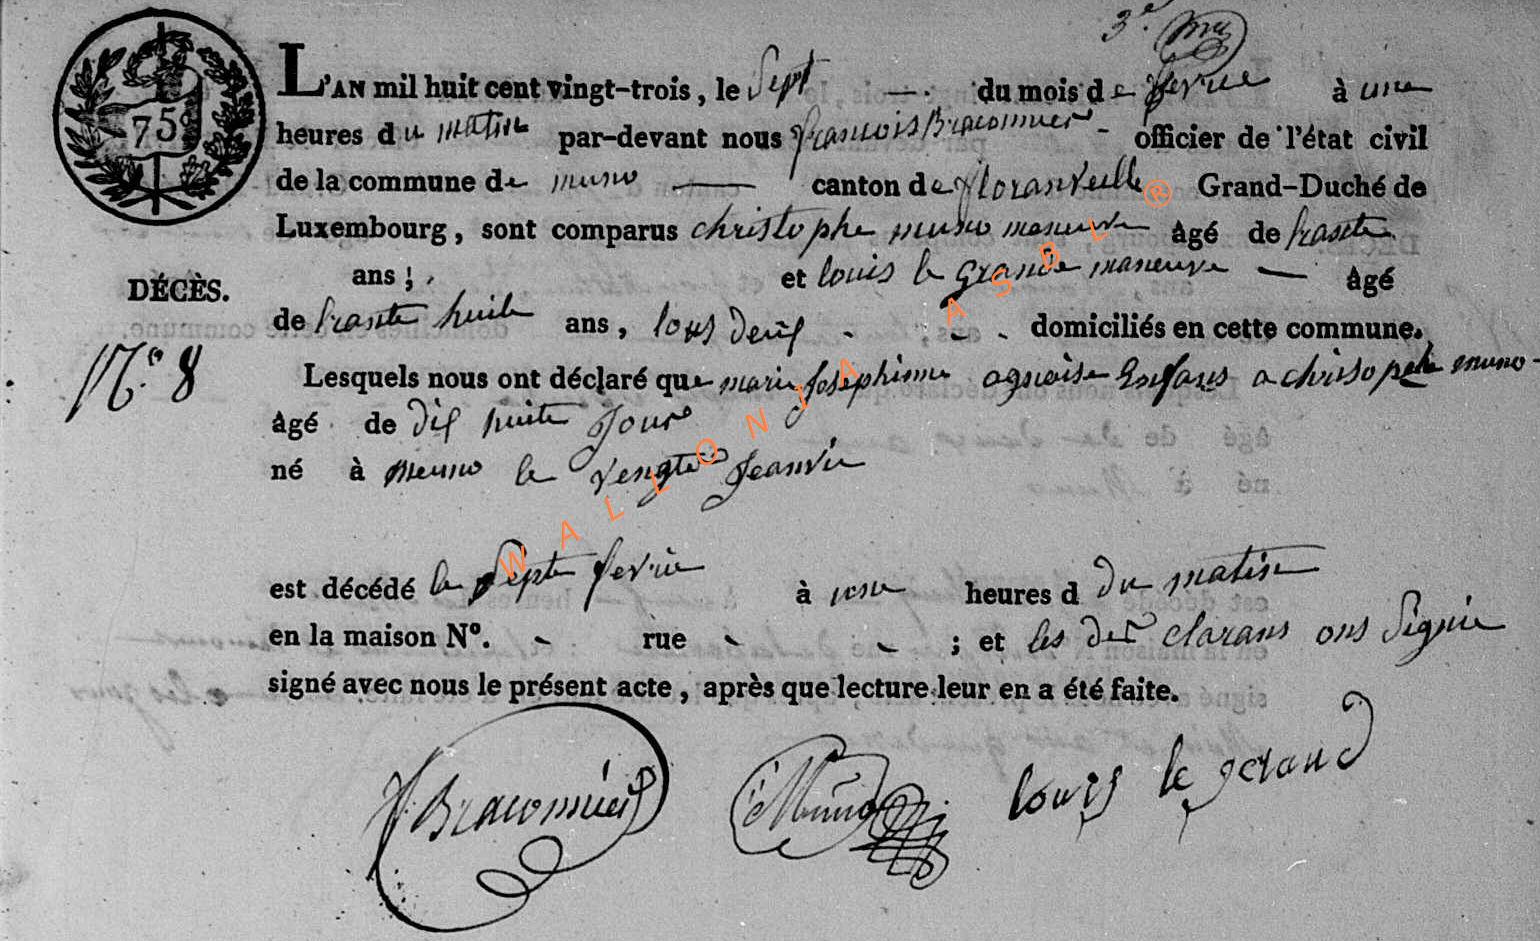 3e
75
L'AN mil huit cent vingt-trois, le Sept du mois de fevrie à une
heures du matin par-devant nous francois Braconnier officier de l'état civil
de la commune de muno canton de floranville Grand-Duché de
Luxembourg, sont comparus christophe muno maneuvre âgé de trante
ans ; et louis le grande maneuvre âgé
DÉCÈS.
de trante huite ans, tous deux domiciliés en cette commune.
N.º 8
Lesquels nous ont déclaré que marie Josephinne Enfans a chrisophe muno
âgé de dix huite Jour
né à muno le vengte Jeanvie
est décédé le septe fevrie à une heures d du matin
en la maison Nº. rue ; et les de clarans ons Signie
signé avec nous le présent acte, après que lecture leur en a été faite.
f. Braconnier Muno louis le grand
WALLONIA ASBL ®